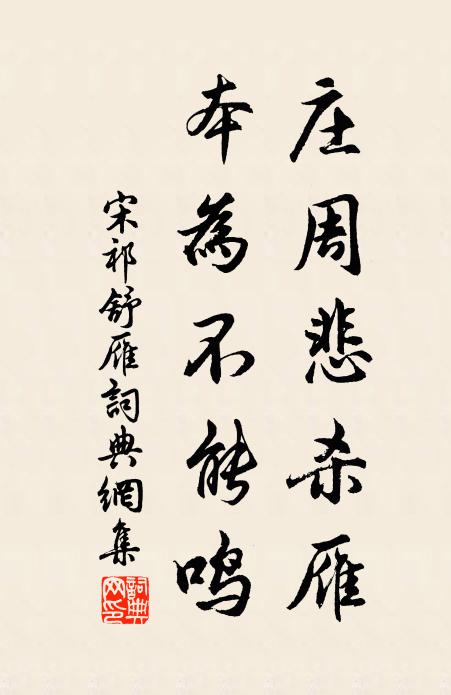 庄周悲杀雁
本為不能鸣
宋祁舒雁詞典網集
詞典网印